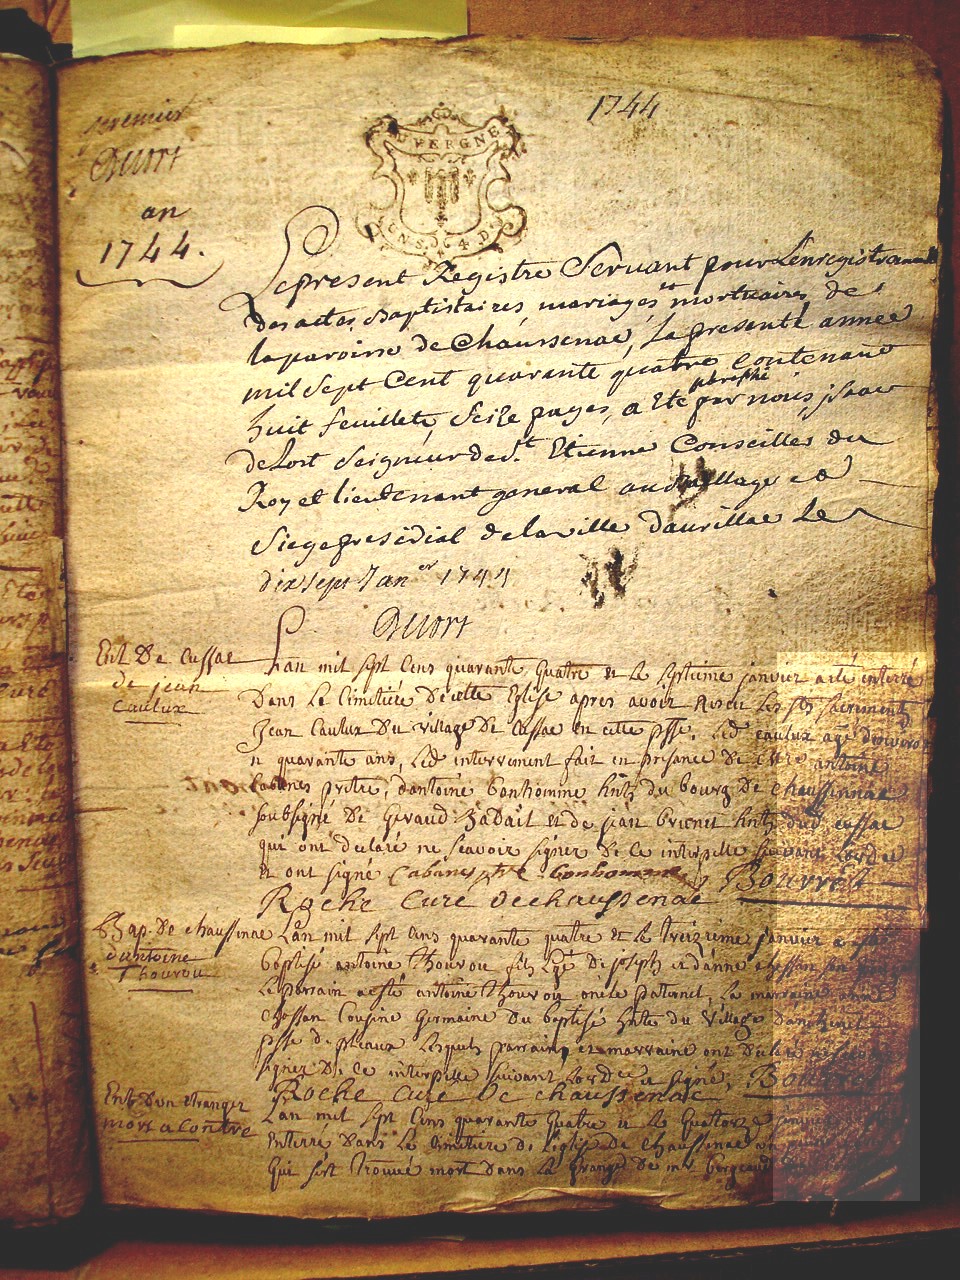 premier
Delort
an
1744.
1744
AUVERGNE
UN. S. 4. D.
Le present Registre Servant pour L'enregistrement
des actes Baptistaires, mariages et mortuaires, de
la paroisse de Chaussenac, La presente année
mil sept Cent quarante quatre Contenant
huit feuillets, Seize pages, a Eté paraphé par nous, jsaac
deLort Seigneur de St. Etienne Conseiller du
Roy et lieutenant general au Baillage et
Siege presidial de la ville daurillac Le
dix sept Janer 1744
Delort
Ent. De Cussac
de jean
Caulux
Lan mil sept Cens quarante quatre et le septieme janvier a été enterré
Dans Le Cimitiére De cette Eglise apres avoir Receu Les sts sacrements
Jean Caulux Du village De Cussac en cette psse. Led. caulux agé denviron
quarante ans, Led. interrement fait en presance De
Cabanes prêtre, dantoine bonhomme hnts du bourg De Chaussennac
soubsigné De Geraud et de jean hnts dud. cussac
qui ont declaré ne scavoir signer De ce interpellé suivant Lordce
et ont signé Cabanes ptre bonhomme Bouvret
Roche Curé de chaussenac
Bap. De chaussenac
dantoine
Thouvou
Lan mil sept Cens quarante quatre et le treizieme janvier a esté
baptisé antoine Thouvou fils Lge. De joseph et danne chossan
Le parrain a esté antoine Thouvou oncle paternel, La marraine anne
Chossan Cousine Germaine Du baptisé hnte du village
psse de pleaux Lesquels parrain, et marraine ont declaré ne scavoir
signer De ce interpellé suivant Lordce et signé, Bouvret
Roche Curé De chaussenac
Ent. Dun etranger
mort a Contre
Lan mil sept Cens quarante quatre et le Quatorze janvier
Enterré Dans Le Cimitiere De Leglise De Chaussenac
Qui sest trouvé mort Dans La Grange De mr bergeaud